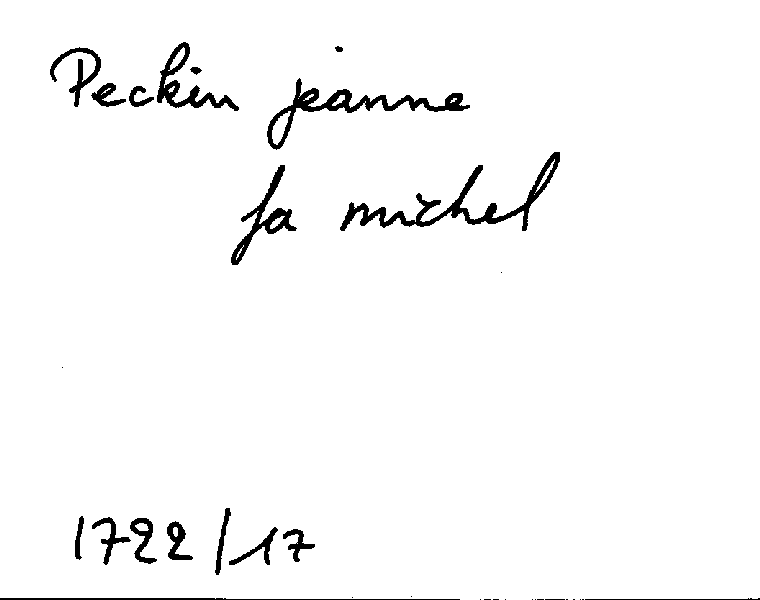 Peckin jeanne
fa michel
1722/17